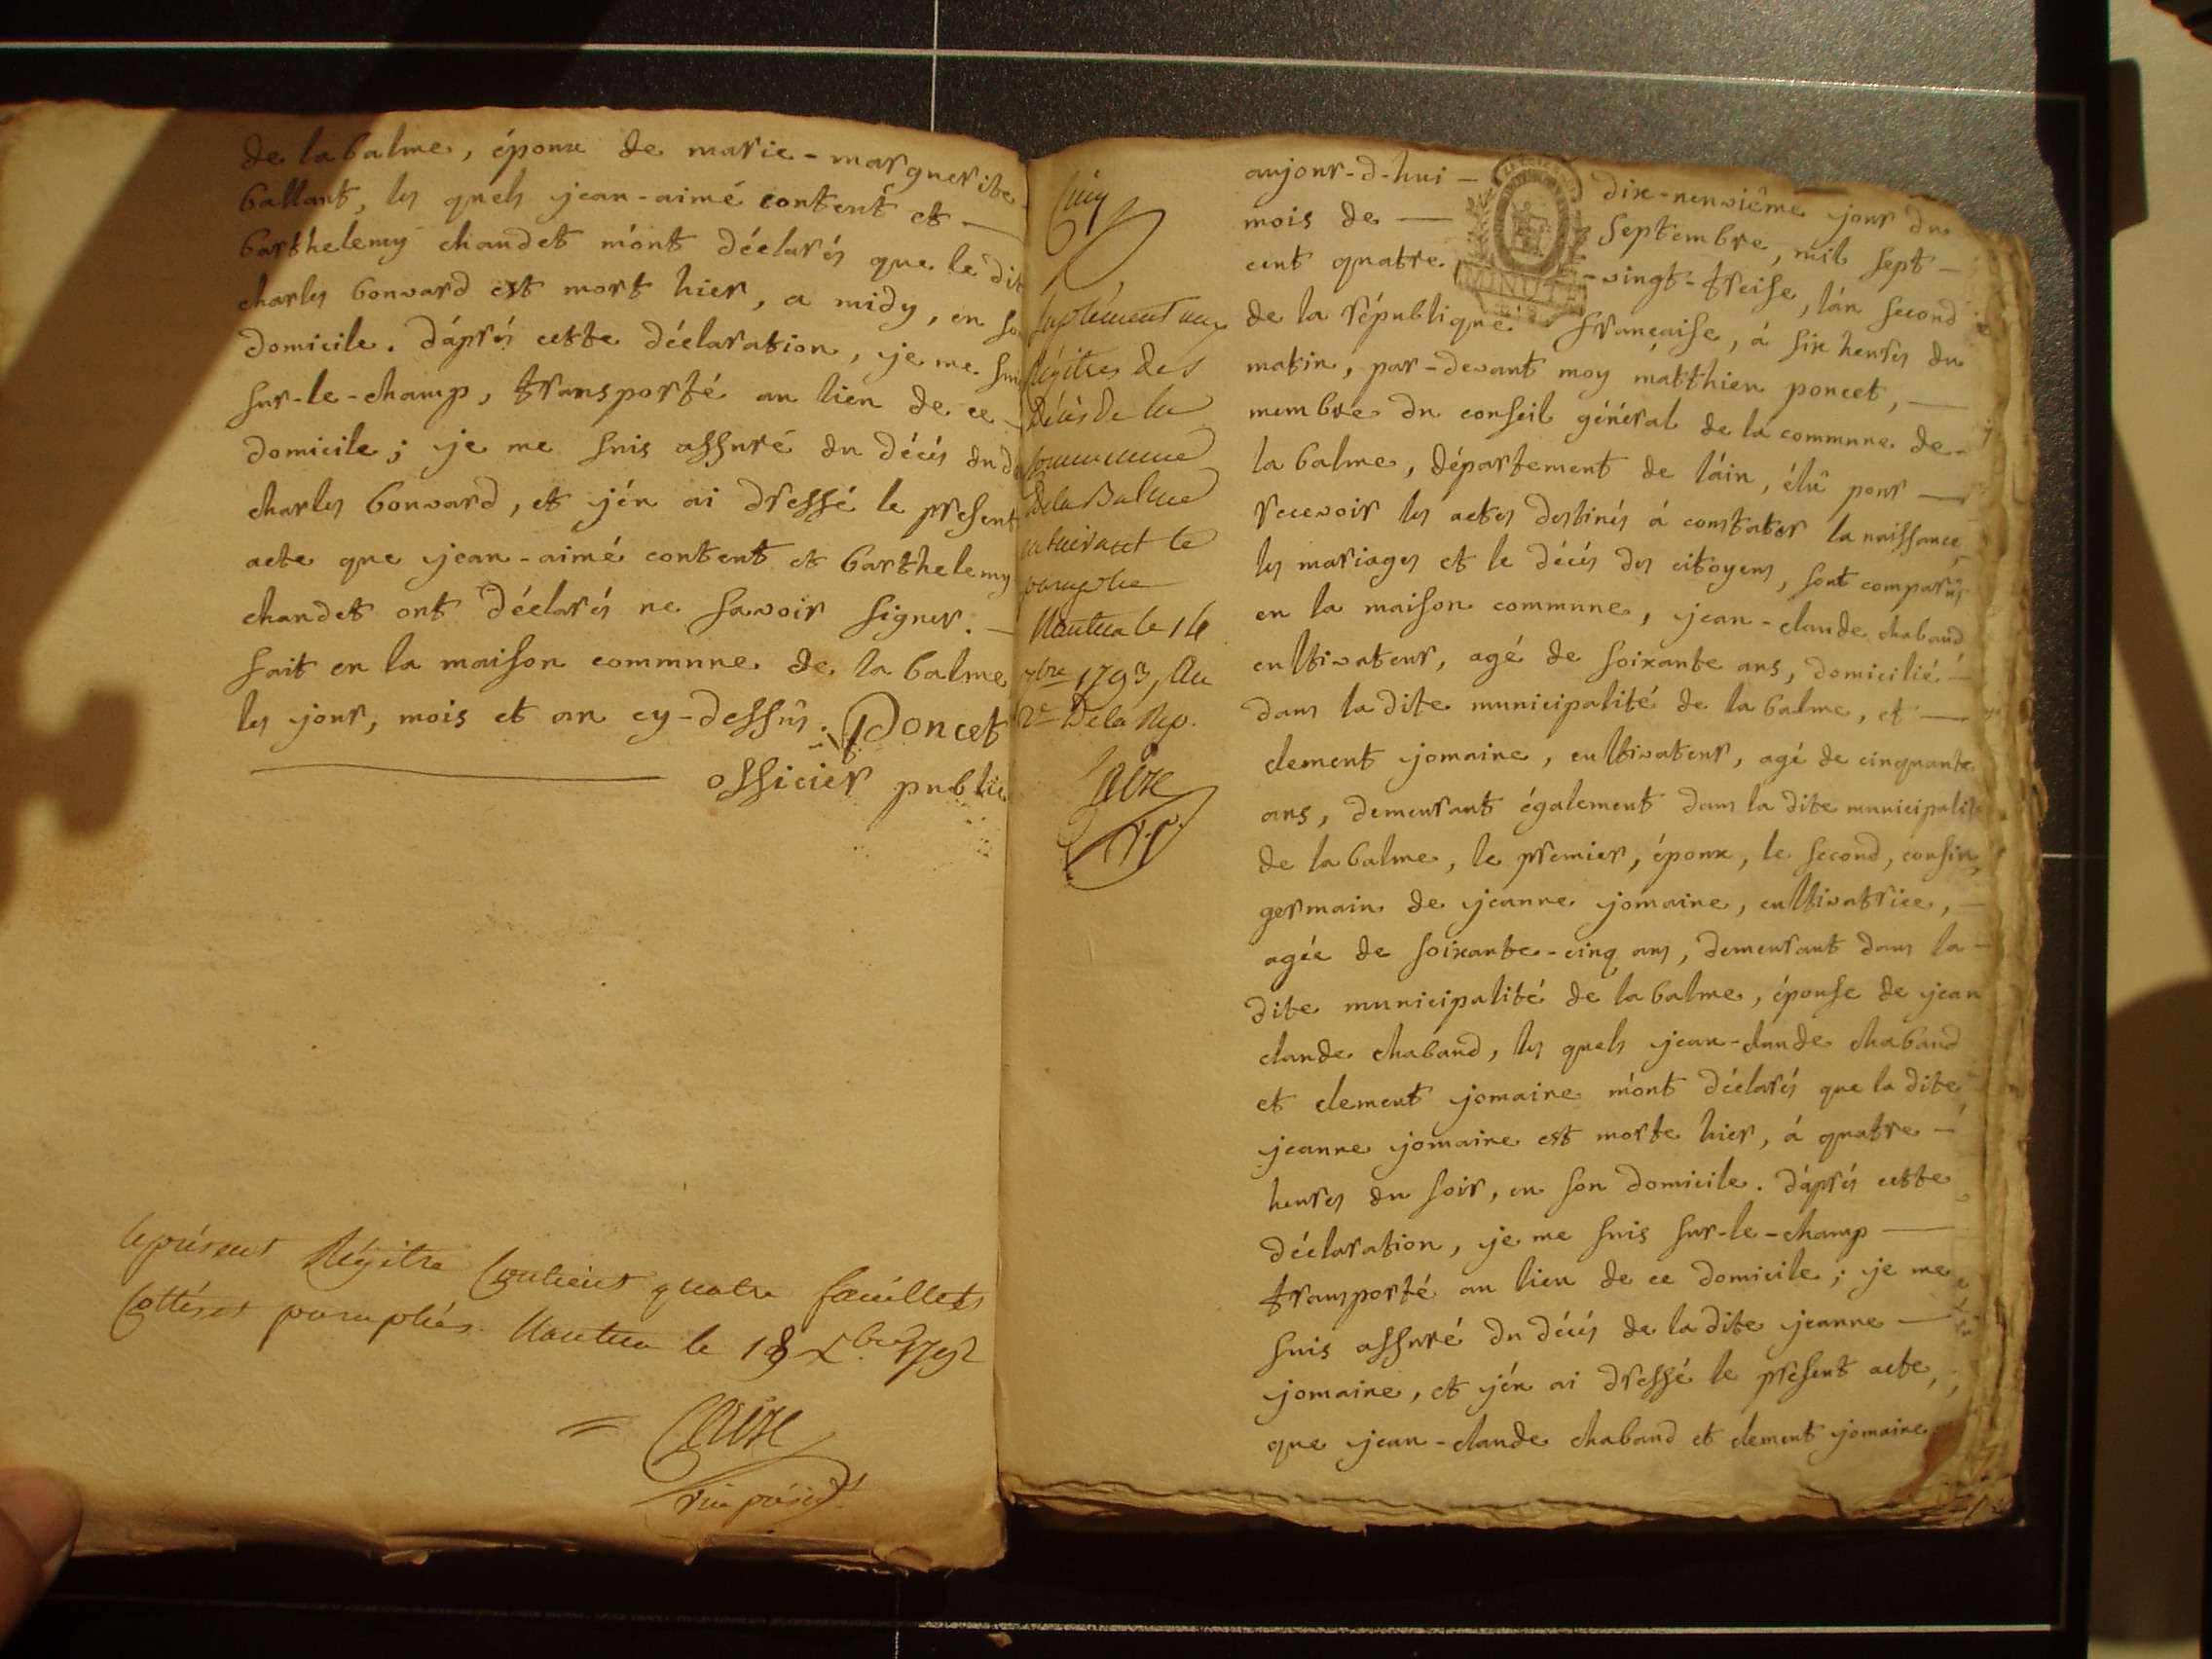 de la balme, époux de marie-marguerite
ballant, les quels jean-aimé content et
barthelemy chaudet m'ont déclarés que le dit
charles bonvard est mort hier, a midy, en so
domicile. d'aprés cette déclaration, je me sui
sur-le-champ, transporté au lieu de ce
domicile ; je me suis assuré du décés du d
charles bonvard, et j'én ai dressé le present
acte que jean-aimé content et barthelemy
chaudet ont déclarés ne savoir signer.
fait en la maison commune de la balme
les jour, mois et an cy-dessus. Poncet
officier public
le présent Régitre Contient quatre feuillets
Cottés et paraphés. Nantua le 18 Xbre 1792
vice présidt
Suplément aux
Régitres des
Décès de la
Commune
De la Balme
paraphe
Nantua le 14
7bre 1793, An
2e De la Rep.
aujour-d-hui dix-neuviême jour du
mois de Septembre, mil sept
cent quatre-vingt-treise, l'án second
de la république française, á six heures du
matin, par-devant moy matthieu poncet,
membre du conseil général de la commune de
la balme, département de l'áin, élû pour
recevoir les actes destinés á constater la naissance,
les mariages et le décés des citoyens, sont comparus
en la maison commune, jean-claude chabaud,
cultivateur, agé de soixante ans, domicilié
dans la dite municipalité de la balme, et
clement jomaine, cultivateur, agé de cinquante
ans, demeurant également dans la dite municipalité
de la balme, le premier, époux, le second, cousin
germain de jeanne jomaine, cultivatrice,
agée de soixante-cinq ans, demeurant dans la
dite municipalité de la balme, épouse de jean
claude chabaud, les quels jean-claude chabaud
et clement jomaine m'ont déclarés que la dite
jeanne jomaine est morte hier, á quatre
heures du soir, en son domicile. d'áprés cette
déclaration, je me suis sur-le-champ
transporté au lieu de ce domicile ; je me
suis assuré du décés de la dite jeanne
jomaine, et j'én ai dressé le present acte,
que jean-claude chabaud et clement jomaine